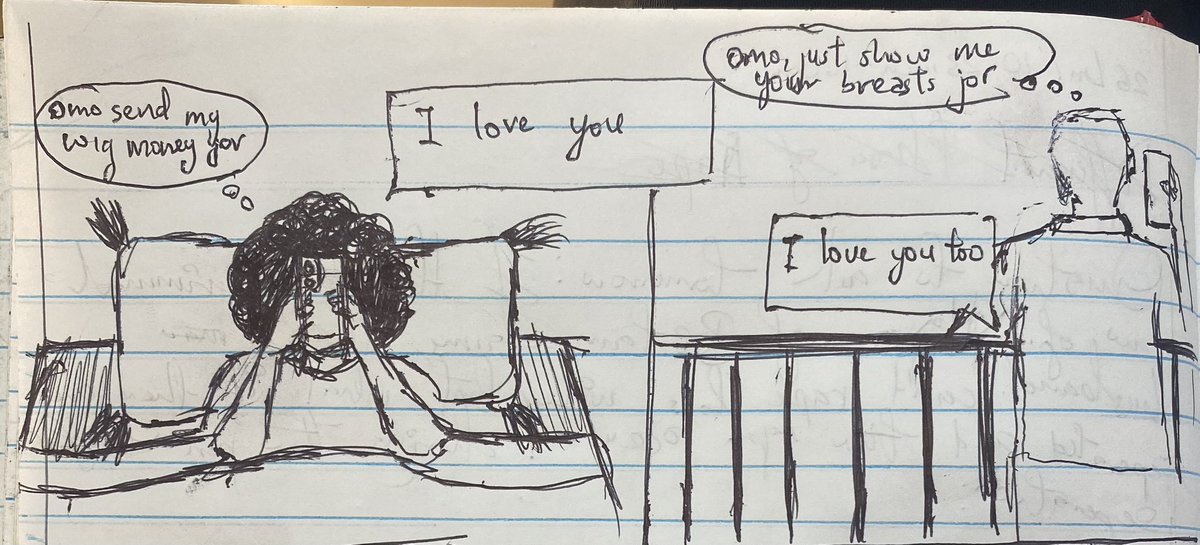 omo send my
wig money yor
I love you
omo, just show me
your breasts jor
I love you too